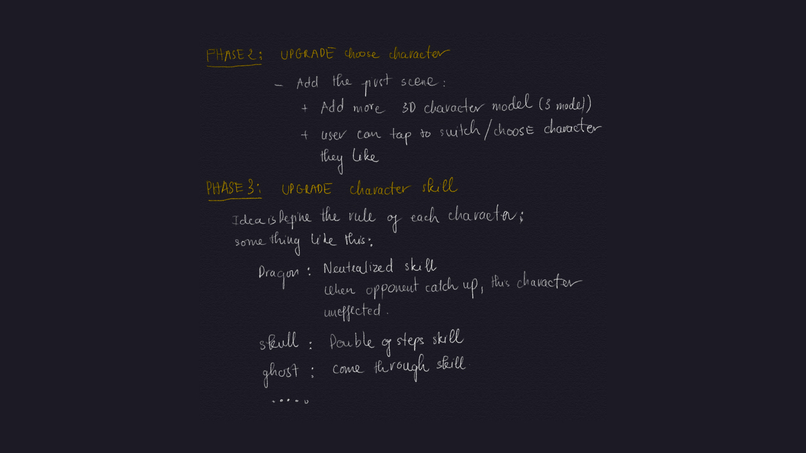 PHASE 2: UPGRADE choose character
- Add the first scene:
+ Add more 3D character model (3 model)
+ user can tap to switch/choose character
they like
PHASE 3: UPGRADE character skill
Idea is Define the rule of each character;
something like this:
Dragon: Neutralized skill
When opponent catch up, this character
uneffected.
skull: Double of steps skill
ghost: come through skill
.....